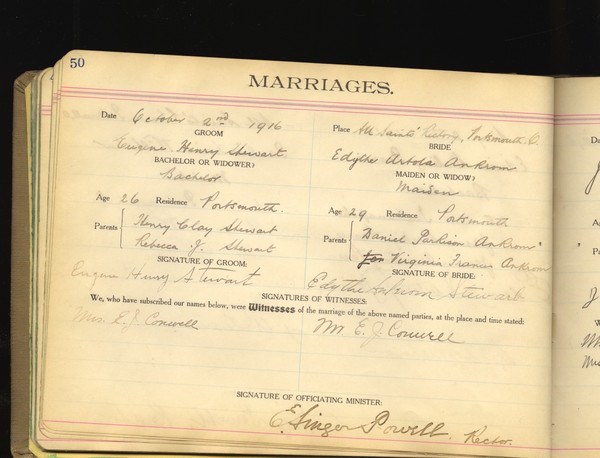 50
MARRIAGES.
Date October 2nd 1916
Place All Saints' Rectory, Portsmouth O.
GROOM
BRIDE
Eugene Henry Stewart
Edythe Ankrom
BACHELOR OR WIDOWER?
MAIDEN OR WIDOW?
Bachelor
Maiden
Age 26 Residence Portsmouth.
Age 29 Residence Portsmouth
Parents Henry Clay Stewart
Rebecca J. Stewart
Parents Daniel Parkison Ankrom
Virginia Frances Ankrom
SIGNATURE OF GROOM:
SIGNATURE OF BRIDE:
Eugene Henry Stewart
Edythe Ankrom Stewart
SIGNATURES OF WITNESSES:
We, who have subscribed our names below, were Witnesses of the marriage of the above named parties, at the place and time stated:
Mrs. E. J. Conwell
Mr E. J. Conwell
SIGNATURE OF OFFICIATING MINISTER:
E. Ainger Powell, Rector.